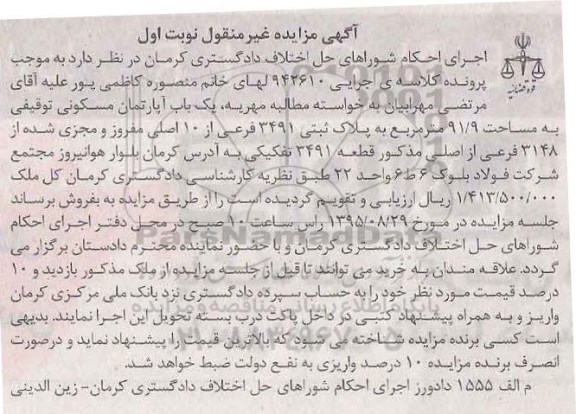 آگهی مزایده غیرمنقول نوبت اول
اجرای احکام شوراهای حل اختلاف دادگستری کرمان در نظر دارد به موجب
پرونده کلاسه ی اجرایی ۹۴۲۶۱۰ لهای خانم منصوره کاظمی پور علیه آقای
مرتضی مهرابیان به خواسته مطالبه مهریه، یک باب آپارتمان مسکونی توقیفی
به مساحت ۹۱/۹ مترمربع به پلاک ثبتی ۳۴۹۱ فرعی از ۱۰ اصلی مفروز و مجزی شده از
۳۱۴۸ فرعی از اصلی مذکور قطعه ۳۴۹۱ تفکیکی به آدرس کرمان بلوار هوانیروز مجتمع
شرکت فولاد بلوک ۶ ط ۶ واحد ۲۲ طبق نظریه کارشناسی دادگستری کرمان کل ملک
۱/۴۱۳/۵۰۰/۰۰۰ ریال ارزیابی و تقویم گردیده است را از طریق مزایده به بفروش برساند
جلسه مزایده در مورخ ۱۳۹۵/۰۸/۲۹ راس ساعت ۱۰ صبح در محل دفتر اجرای احکام
شوراهای حل اختلاف دادگستری کرمان و با حضور نماینده محترم دادستان برگزار می
گردد. علاقه مندان به خرید می توانند تا قبل از جلسه مزایده از ملک مذکور بازدید و ۱۰
درصد قیمت مورد نظر خود را به حساب سپرده دادگستری نزد بانک ملی مرکزی کرمان
واریز و به همراه پیشنهاد کتبی در داخل پاکت دربسته تحویل این اجرا نمایند. بدیهی
است کسی برنده مزایده شناخته می شود که بالاترین قیمت را پیشنهاد نماید و درصورت
انصراف برنده مزایده ۱۰ درصد واریزی به نفع دولت ضبط خواهد شد.
م الف ۱۵۵۵ دادورز اجرای احکام شوراهای حل اختلاف دادگستری کرمان- زین الدینی